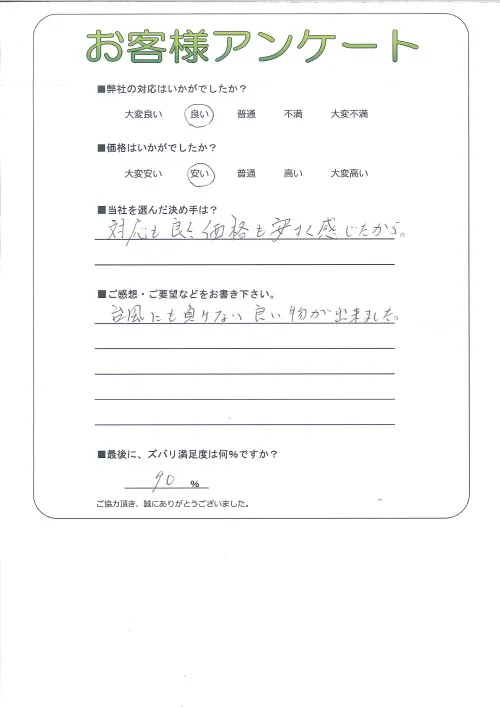 お客様アンケート
■弊社の対応はいかがでしたか？
大変良い 良い 普通 不満 大変不満
■価格はいかがでしたか？
大変安い 安い 普通 高い 大変高い
■当社を選んだ決め手は？
対応も良く、価格も安すく感じたから。
■ご感想・ご要望などをお書き下さい。
台風にも負けない良い物が出来ました。
■最後に、ズバリ満足度は何%ですか？
90 %
ご協力頂き、誠にありがとうございました。